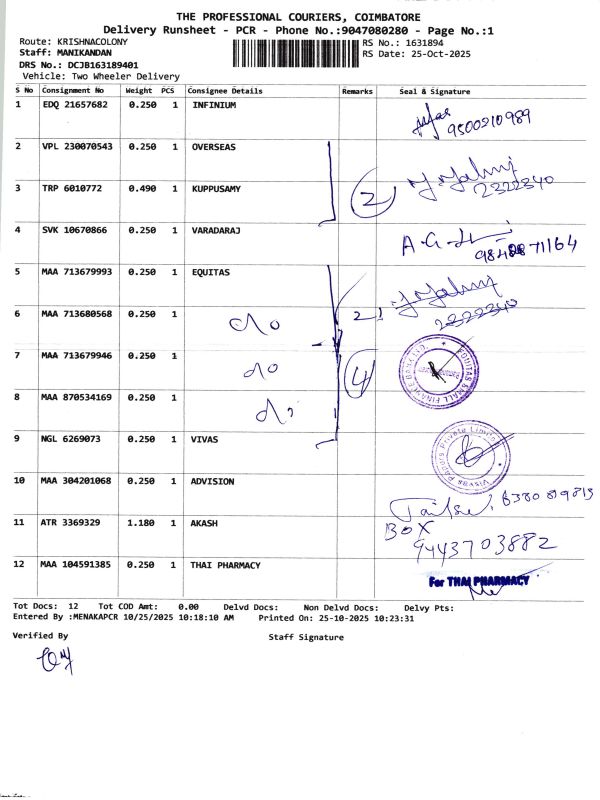 THE PROFESSIONAL COURIERS, COIMBATORE
Delivery Runsheet - PCR - Phone No.:9047080280 - Page No.:1
Route: KRISHNACOLONY RS No.: 1631894
Staff: MANIKANDAN RS Date: 25-Oct-2025
DRS No.: DCJB163189401
Vehicle: Two Wheeler Delivery
S No Consignment No Weight PCS Consignee Details Remarks Seal & Signature
1 EDQ 21657682 0.250 1 INFINIUM
9500210989
2 VPL 230070543 0.250 1 OVERSEAS
3 TRP 6010772 0.490 1 KUPPUSAMY 2 2322340
4 SVK 10670866 0.250 1 VARADARAJ
5 MAA 713679993 0.250 1 EQUITAS
6 MAA 713680568 0.250 1 do 2 2322340
7 MAA 713679946 0.250 1 do 4 EQUITAS SMALL FINANCE BANK LTD.
8 MAA 870534169 0.250 1
9 NGL 6269073 0.250 1 VIVAS Private Limited
10 MAA 304201068 0.250 1 ADVISION
11 ATR 3369329 1.180 1 AKASH BOX
9443703882
12 MAA 104591385 0.250 1 THAI PHARMACY For THAI PHARMACY
Tot Docs: 12 Tot COD Amt: 0.00 Delvd Docs: Non Delvd Docs: Delvy Pts:
Entered By :MENAKAPCR 10/25/2025 10:18:10 AM Printed On: 25-10-2025 10:23:31
Verified By Staff Signature